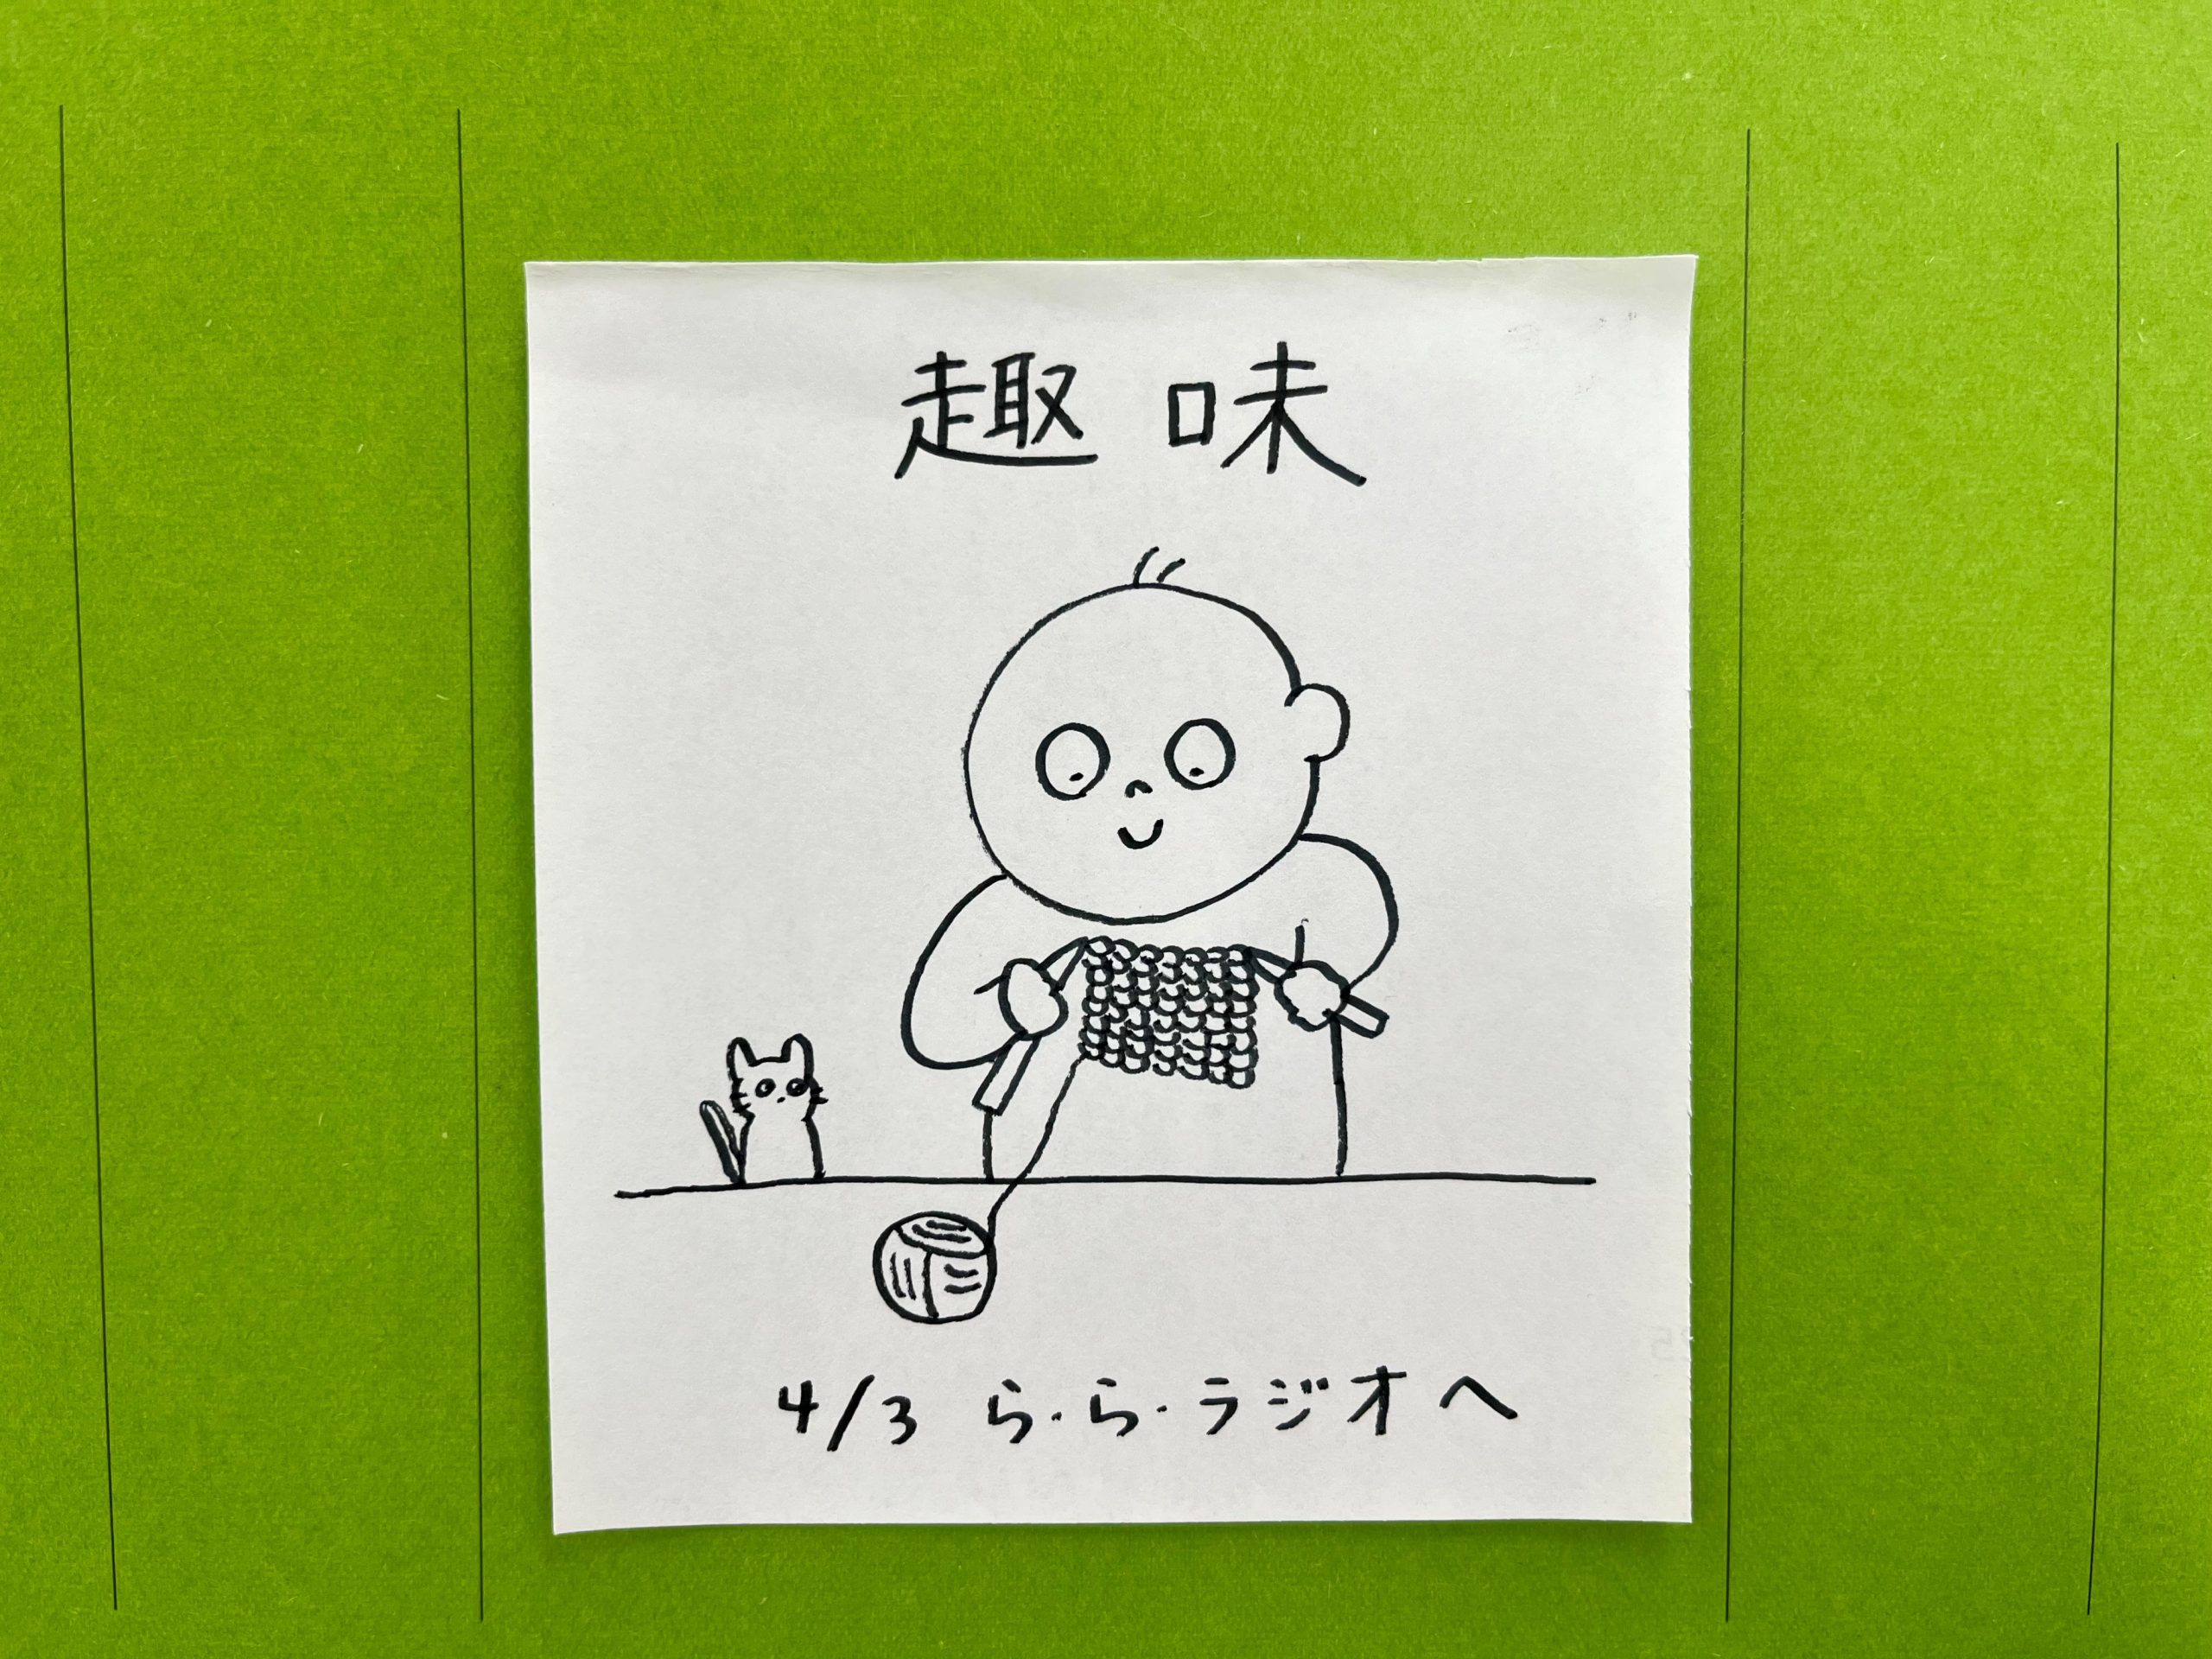 趣味
4/3 ら・ら・ラジオへ